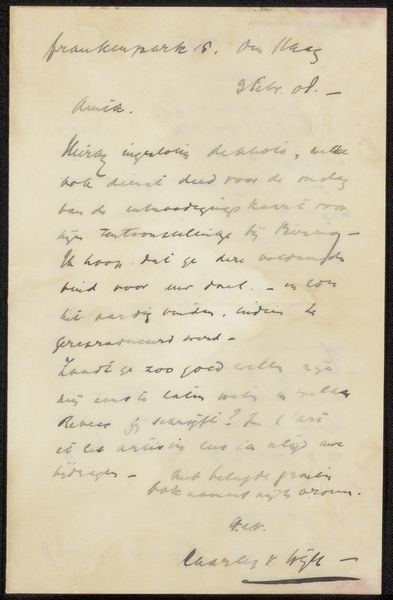 frankenpark 18. Den Haag
9 Febr. 08. —
Amice.
Hierbij ingesloten de photo, welke
ook dienst deed voor de omslag
van de uitnoodigings kaart voor
mijn tentoonstelling bij —
Ik hoop dat ge deze voldoende
vind voor uw doel. —
het aardig vinden, indien de
gereproduceerd werd —
Zoudt ge zoo goed willen zijn
mij eens te laten weten in welken
Revues gij schrijft? In l'art
et les artistes
bijdragen — met beleefde groeten
ook namens mijn vrouw.
t.à.t.
Charles v Wijk —